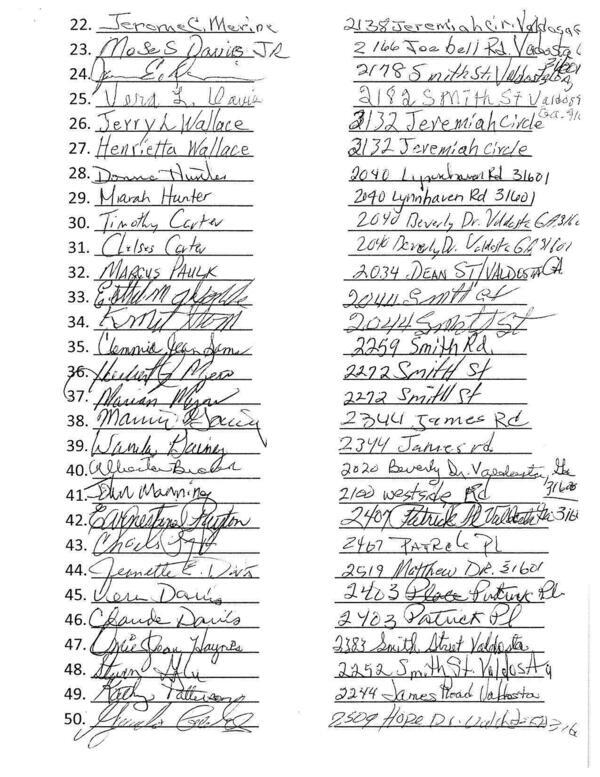 22. Jerome C. Merine 2138 Jeremiah Cir. Valdosta G
23. Moses Davis JR 2166 Joe bell Rd. Valdosta G
31601
24. 2178 Smith St. Valdosta Ga
25. Vera L. Davis 2182 SMITH ST Valdosta
Ga. 316
26. Jerry L Wallace 2132 Jeremiah Circle
27. Henrietta Wallace 2132 Jeremiah circle
28. Donna Hunter 2040 Lynnhaven Rd 31601
29. Miarah Hunter 2040 Lynnhaven Rd 31601
30. Timothy Carter 2040 Beverly Dr. Valdosta GA, 316
31. Chelsea Carter 2040 Beverly D. Valdosta GA, 31601
32. MARCUS PAULK 2034 DEAN ST/VALDOSTA GA
33. 2044 Smith St
34. 2044 Smith St
35. Clemmie Jean 2259 Smith Rd.
36. Herbert 2272 Smith St
37. Marian 2272 Smith St
38. 2344 James Rd
39. Wanda Gainey 2344 James rd.
40. 2020 Beverly Dr. Valdosta, Ga
31601
41. Manning 2100 westside Rd
42. Earnestine 2407 Patrick Pl Valdosta Ga 316
43. Charles 2407 PATRICK Pl
44. Jeanette E. Davis 2519 Matthew DR. 31601
45. Vera Davis 2403 Patrick Pl
46. Claude Davis 2403 Patrick Pl
47. Jean Haynes 2383 Smith Street Valdosta
48. 2252 Smith St. Valdosta
49. Kathy Patterson 2244 James Road Valdosta
50. 2509 Hope Dr. 316